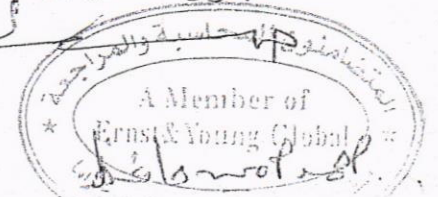 المتضامنون للمحاسبة والمراجعة
A Member of
Ernst & Young Global